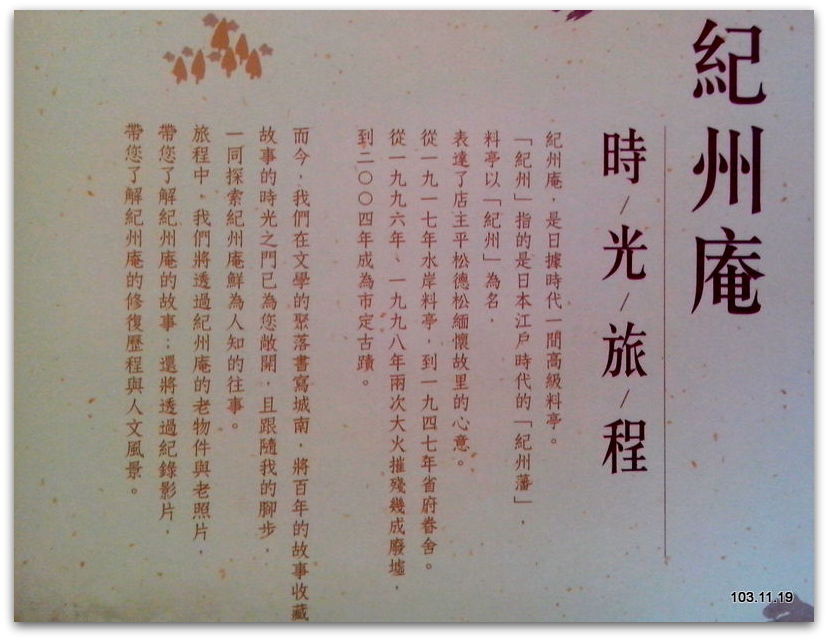 紀州庵
時/光/旅/程
紀州庵，是日據時代一間高級料亭。
「紀州」指的是日本江戶時代的「紀州藩」，
料亭以「紀州」為名，
表達了店主平松德松緬懷故里的心意。
從一九一七年水岸料亭，到一九四七年省府眷舍。
從一九九六年、一九九八年兩次大火摧殘幾成廢墟，
到二〇〇四年成為市定古蹟。
而今，我們在文學的聚落書寫城南，將百年的故事收藏
故事的時光之門已為您敞開，且跟隨我的腳步，
一同探索紀州庵鮮為人知的往事。
旅程中，我們將透過紀州庵的老物件與老照片，
帶您了解紀州庵的故事；還將透過紀錄影片，
帶您了解紀州庵的修復歷程與人文風景。
103.11.19